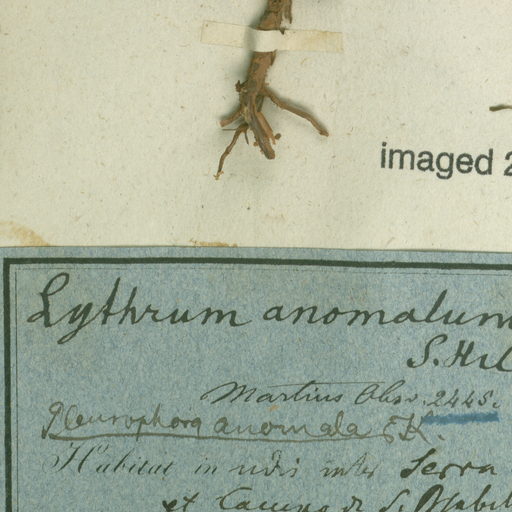 imaged 2
Lythrum anomalum
S. Hil
Martius Obs. 2445.
Pleurophora anomala K.
Habitat in udis inter Serra
et Campo de S.